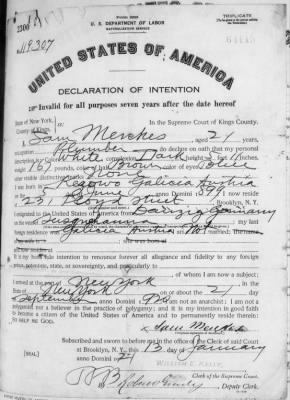 Form 2203
U. S. DEPARTMENT OF LABOR
NATURALIZATION SERVICE
TRIPLICATE
No. 119307
UNITED STATES OF AMERICA
DECLARATION OF INTENTION
Invalid for all purposes seven years after the date hereof
State of New York,
County of Kings,
In the Supreme Court of Kings County.
I, Sam Merches aged 21 years,
occupation Plumber do declare on oath that my personal
description is: Color White complexion Dark height 5 feet inches,
weight 167 pounds, color of hair Brown color of eyes
other visible distinctive marks None
Galicia Austria
on the 5 day of June anno Domini 1899 I now reside
at 231 Floyd Street Brooklyn, N. Y.
I emigrated to the United States of America from Danzig Germany
on the vessel Susquehanna my last
foreign residence was Galicia Austria I am not married; the name
of my wife is she was born at
It is my bona fide intention to renounce forever all allegiance and fidelity to any foreign
prince, potentate, state, or sovereignty, and particularly to
of whom I am now a subject;
I arrived at the port of New York
State of New York on or about the 21 day
of September anno Domini 1920 I am not an anarchist; I am not a
polygamist nor a believer in the practice of polygamy; and it is my intention in good faith
to become a citizen of the United States of America and to permanently reside therein:
SO HELP ME GOD.
x Sam Merches
Subscribed and sworn to before me in the office of the Clerk of said Court
at Brooklyn, N. Y., this 13 day of January
anno Domini 1921
[SEAL]
WILLIAM E. KELLY
Clerk of the Supreme Court.
Deputy Clerk.